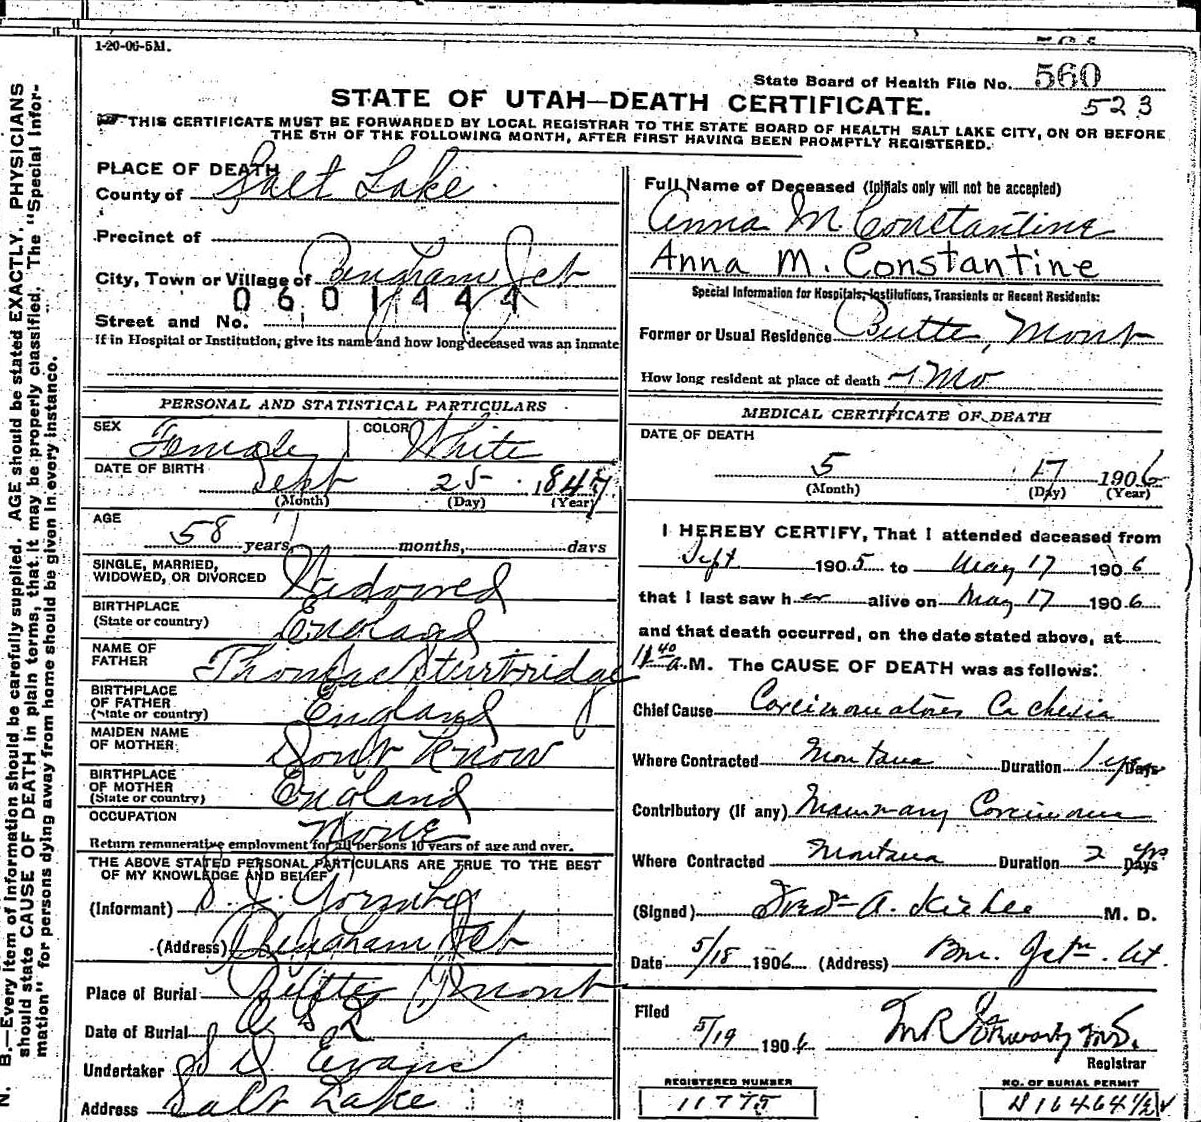 1-20-06-5M.
State Board of Health File No. 560
523
STATE OF UTAH—DEATH CERTIFICATE.
THIS CERTIFICATE MUST BE FORWARDED BY LOCAL REGISTRAR TO THE STATE BOARD OF HEALTH SALT LAKE CITY, ON OR BEFORE
THE 5TH OF THE FOLLOWING MONTH, AFTER FIRST HAVING BEEN PROMPTLY REGISTERED.
PLACE OF DEATH
County of Salt Lake
Precinct of
City, Town or Village of Bingham Jct
0601444
Street and No.
If in Hospital or Institution, give its name and how long deceased was an inmate
Full Name of Deceased (Initials only will not be accepted)
Anna M Constantine
Anna M. Constantine
Special Information for Hospitals, Institutions, Transients or Recent Residents:
Former or Usual Residence Butte, Mont
How long resident at place of death Mo
PERSONAL AND STATISTICAL PARTICULARS
SEX Female COLOR White
DATE OF BIRTH
Sept 25 1847
(Month) (Day) (Year)
AGE
58 years, months, days
SINGLE, MARRIED,
WIDOWED, OR DIVORCED Widowed
BIRTHPLACE
(State or country) England
NAME OF
FATHER Thomas Sturtridge
BIRTHPLACE
OF FATHER
(State or country) England
MAIDEN NAME
OF MOTHER Don't Know
BIRTHPLACE
OF MOTHER
(State or country) England
OCCUPATION None
Return remunerative employment for all persons 10 years of age and over.
THE ABOVE STATED PERSONAL PARTICULARS ARE TRUE TO THE BEST
OF MY KNOWLEDGE AND BELIEF
(Informant)
(Address) Bingham Jct
Place of Burial Butte Mont
Date of Burial
Undertaker S D Evans
Address Salt Lake
MEDICAL CERTIFICATE OF DEATH
DATE OF DEATH
5 17 1906
(Month) (Day) (Year)
I HEREBY CERTIFY, That I attended deceased from
Sept 1905 to May 17 1906
that I last saw her alive on May 17 1906
and that death occurred, on the date stated above, at
11 40 a.M. The CAUSE OF DEATH was as follows:
Chief Cause Carcinomatous Cachexia
Where Contracted Montana Duration 1 yr Days
Contributory (if any) Mammary Carcinoma
Where Contracted Montana Duration 2 yrs Days
(Signed) Fred A. M. D.
Date 5/18 1906 (Address) Bm. Jctn. Ut.
Filed
5/19 1906 M.D.
Registrar
REGISTERED NUMBER
11775
NO. OF BURIAL PERMIT
16464 1/2
N. B.—Every item of information should be carefully supplied. AGE should be stated EXACTLY. PHYSICIANS
should state CAUSE OF DEATH in plain terms, that it may be properly classified. The "Special Infor-
mation" for persons dying away from home should be given in every instance.